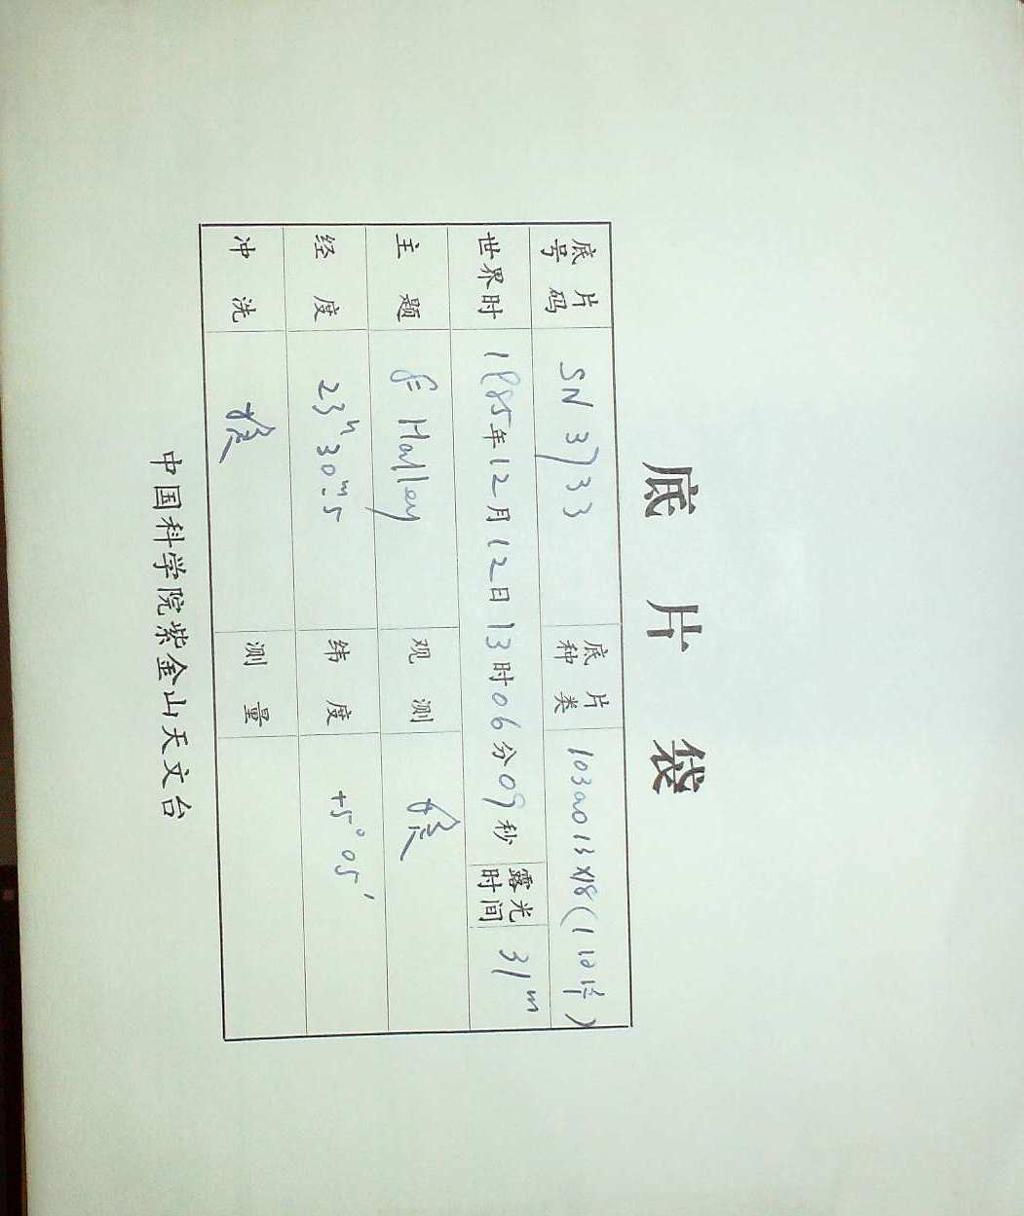 底 片 袋
底片号码 SN 3733 底片种类 103aO 13×18 (1
世界时 1985年12月12日13时06分09秒 露光时间 31m
主题 Halley 观测
经度 23h 30m.5 纬度 +5° 05′
冲洗 测量
中国科学院紫金山天文台